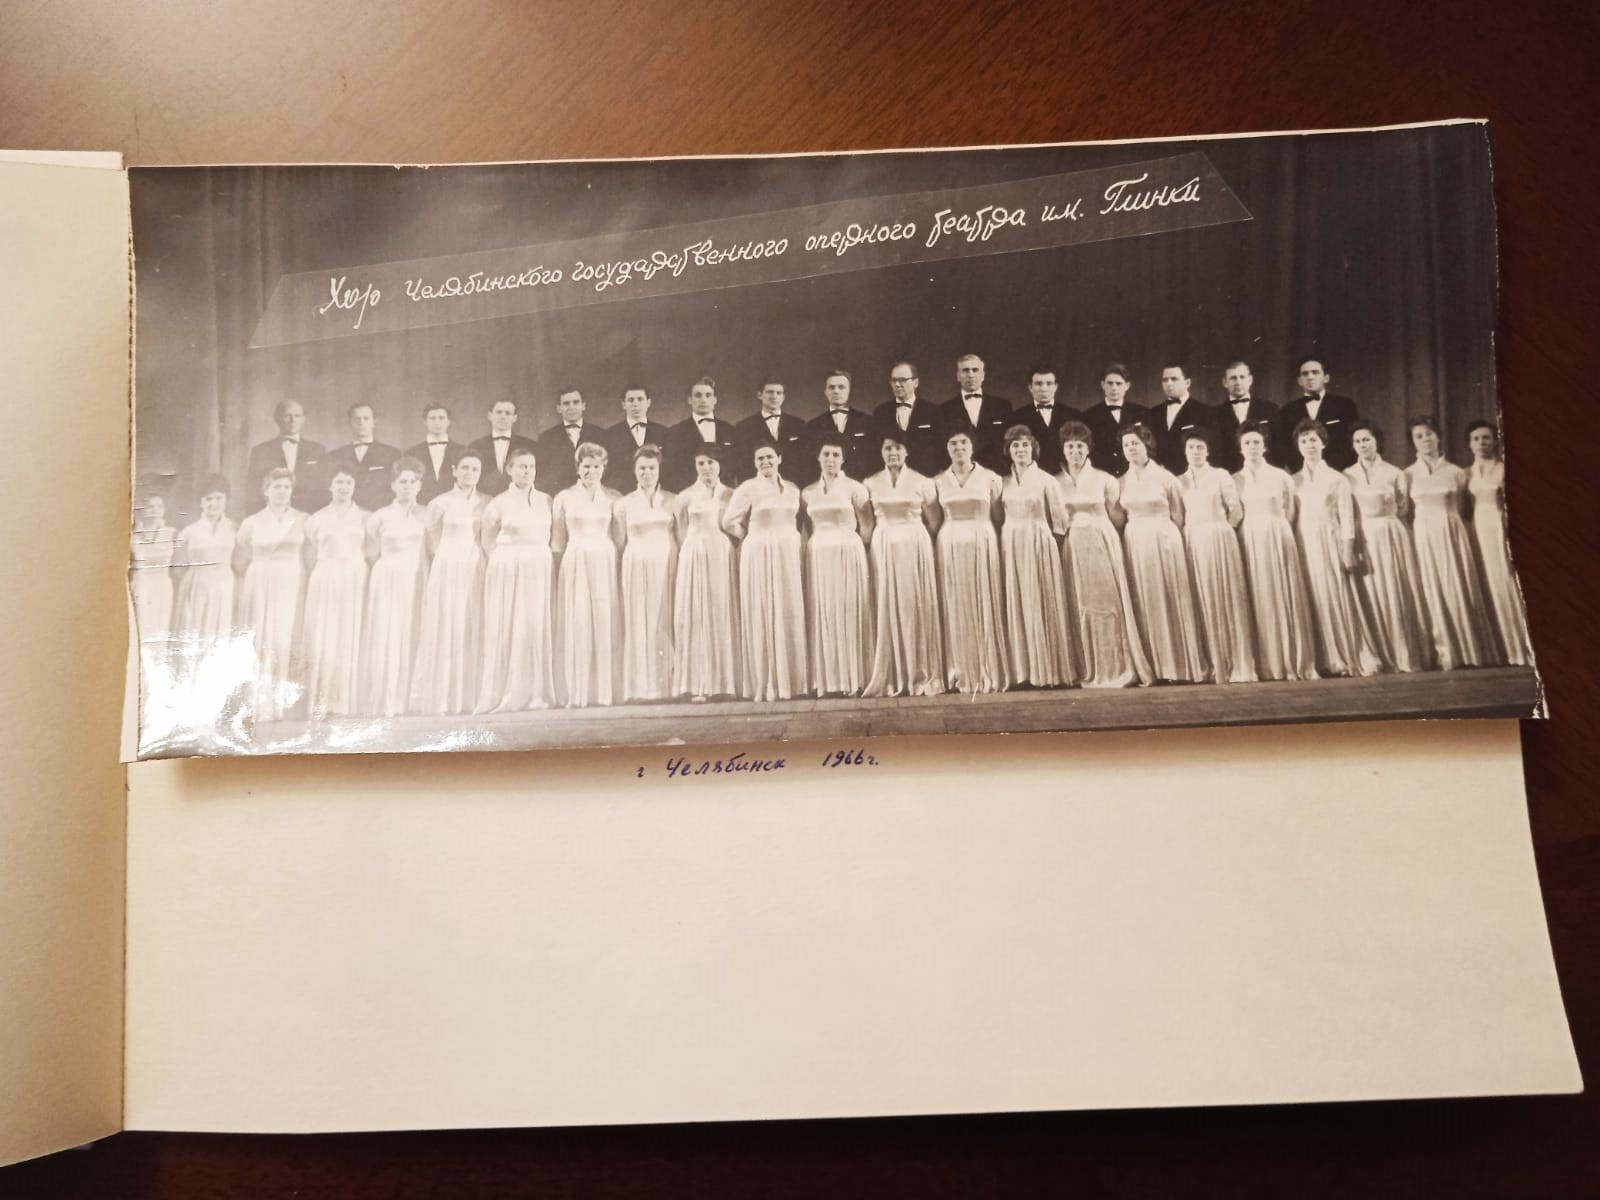 Хор Челябинского государственного оперного театра им. Глинки
г Челябинск 1966г.